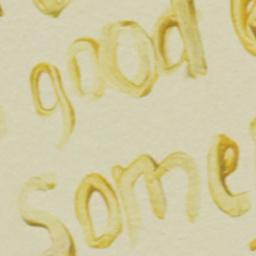 good
some